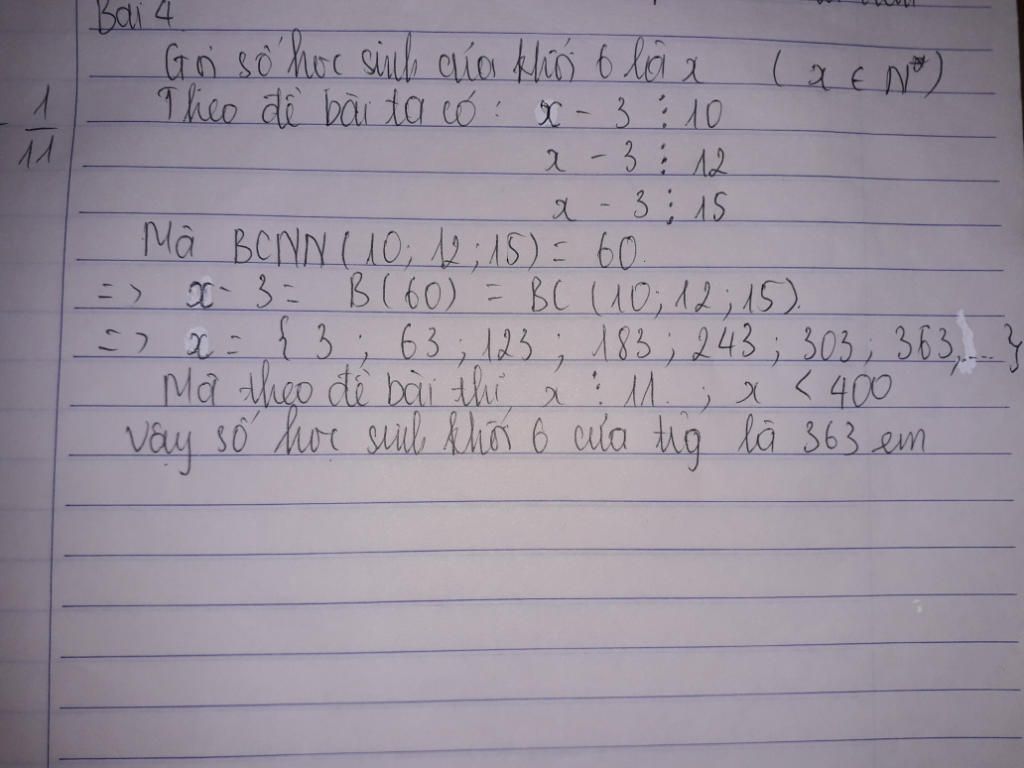 Bài 4
Gọi số học sinh của khối 6 là x ( x ∈ N* )
1
11
Theo đề bài ta có: x - 3 ⋮ 10
x - 3 ⋮ 12
x - 3 ⋮ 15
Mà BCNN(10; 12; 15) = 60.
=> x - 3 = B(60) = BC(10; 12; 15).
=> x = { 3 ; 63 ; 123 ; 183 ; 243 ; 303 ; 363, ... }
Mà theo đề bài thì x ⋮ 11. ; x < 400
Vậy số học sinh khối 6 của trg là 363 em